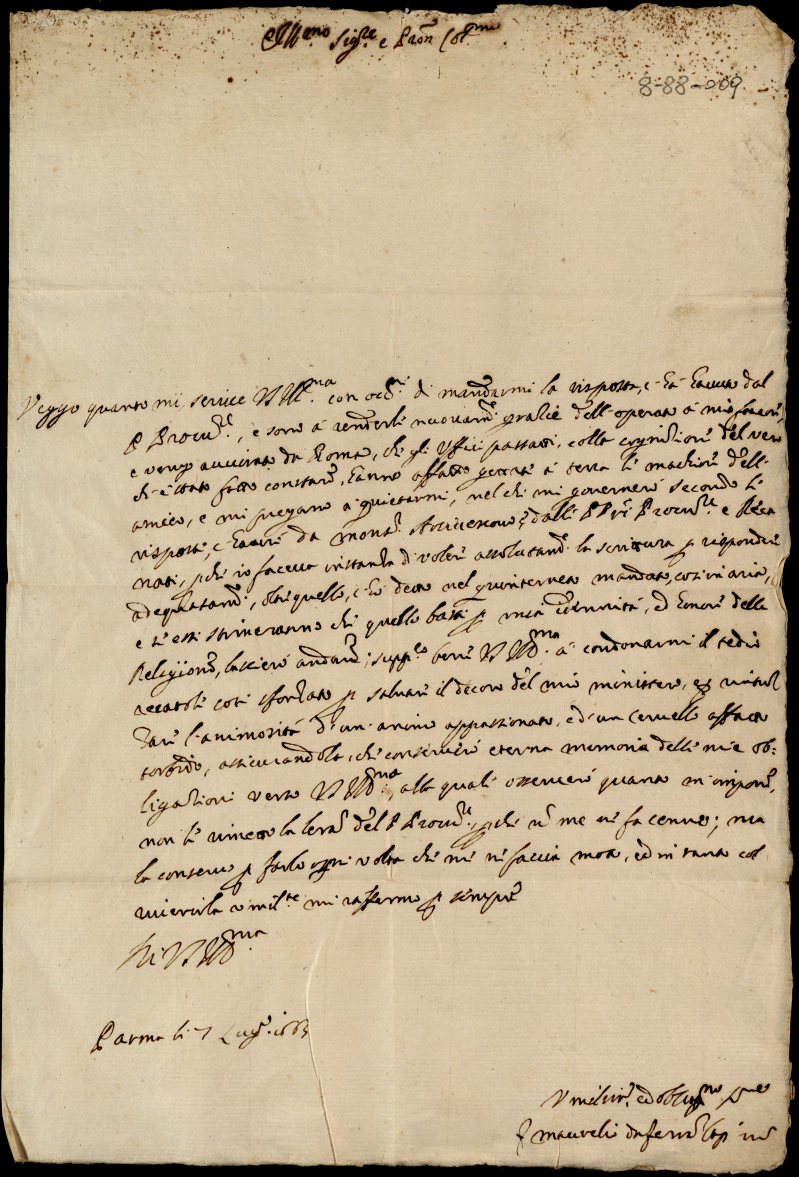 Ill.mo Sig.re e Pron Col.mo
8-88-009
Veggo quanto mi scrive V S Ill.ma con occ.e di mandarmi la risposta, c'hà havuta dal
P Procur.re, e sono à renderli nuovam.e gratie dell'operato à mio favore,
e vengo avvisato da Roma, che gli Uffici passati, colla cognitione del vero
ch'è stato fatto constare, hanno affatto gettate à terra le machine dell'
amico, e mi pregano à quietarmi, nel che mi governerò secondo le
risposte, c'havrò da Mons.r Arcivescovo, e dalli P P.ri Procur.re e
nati, perche io faceva instanza di voler assolutam.e la scrittura p rispondere
adequatam.e, oltre quello, c'hò detto nel quinternetto mandato, costì in aria,
e s'essi stimeranno che quello basti p mia, ed honore della
Religione, lascierò andare; supp.co bene V S Ill.ma à condonarmi il tedio
recatoli così sforzato p salvare il decoro del mio ministero, e
dare l'animosità d'un animo appassionato, e d'un cervello affatto
torbido, assicurandola, che conserverò eterna memoria delle mie ob=
ligationi verso V S Ill.ma, alla quale osserverò quanto m'impone,
non li rimetto la lera del P Procur.re, perche n me ne fa cenno; ma
la conservo p farlo ogni volta che me ne faccia moto, ed in tanto col
riverirla umil.te mi raffermo p sempre
Di V S Ill.ma
Parma li 7 Lug.o
Umiliss.o ed oblig.mo
F Maurelio da Ferrara Cap